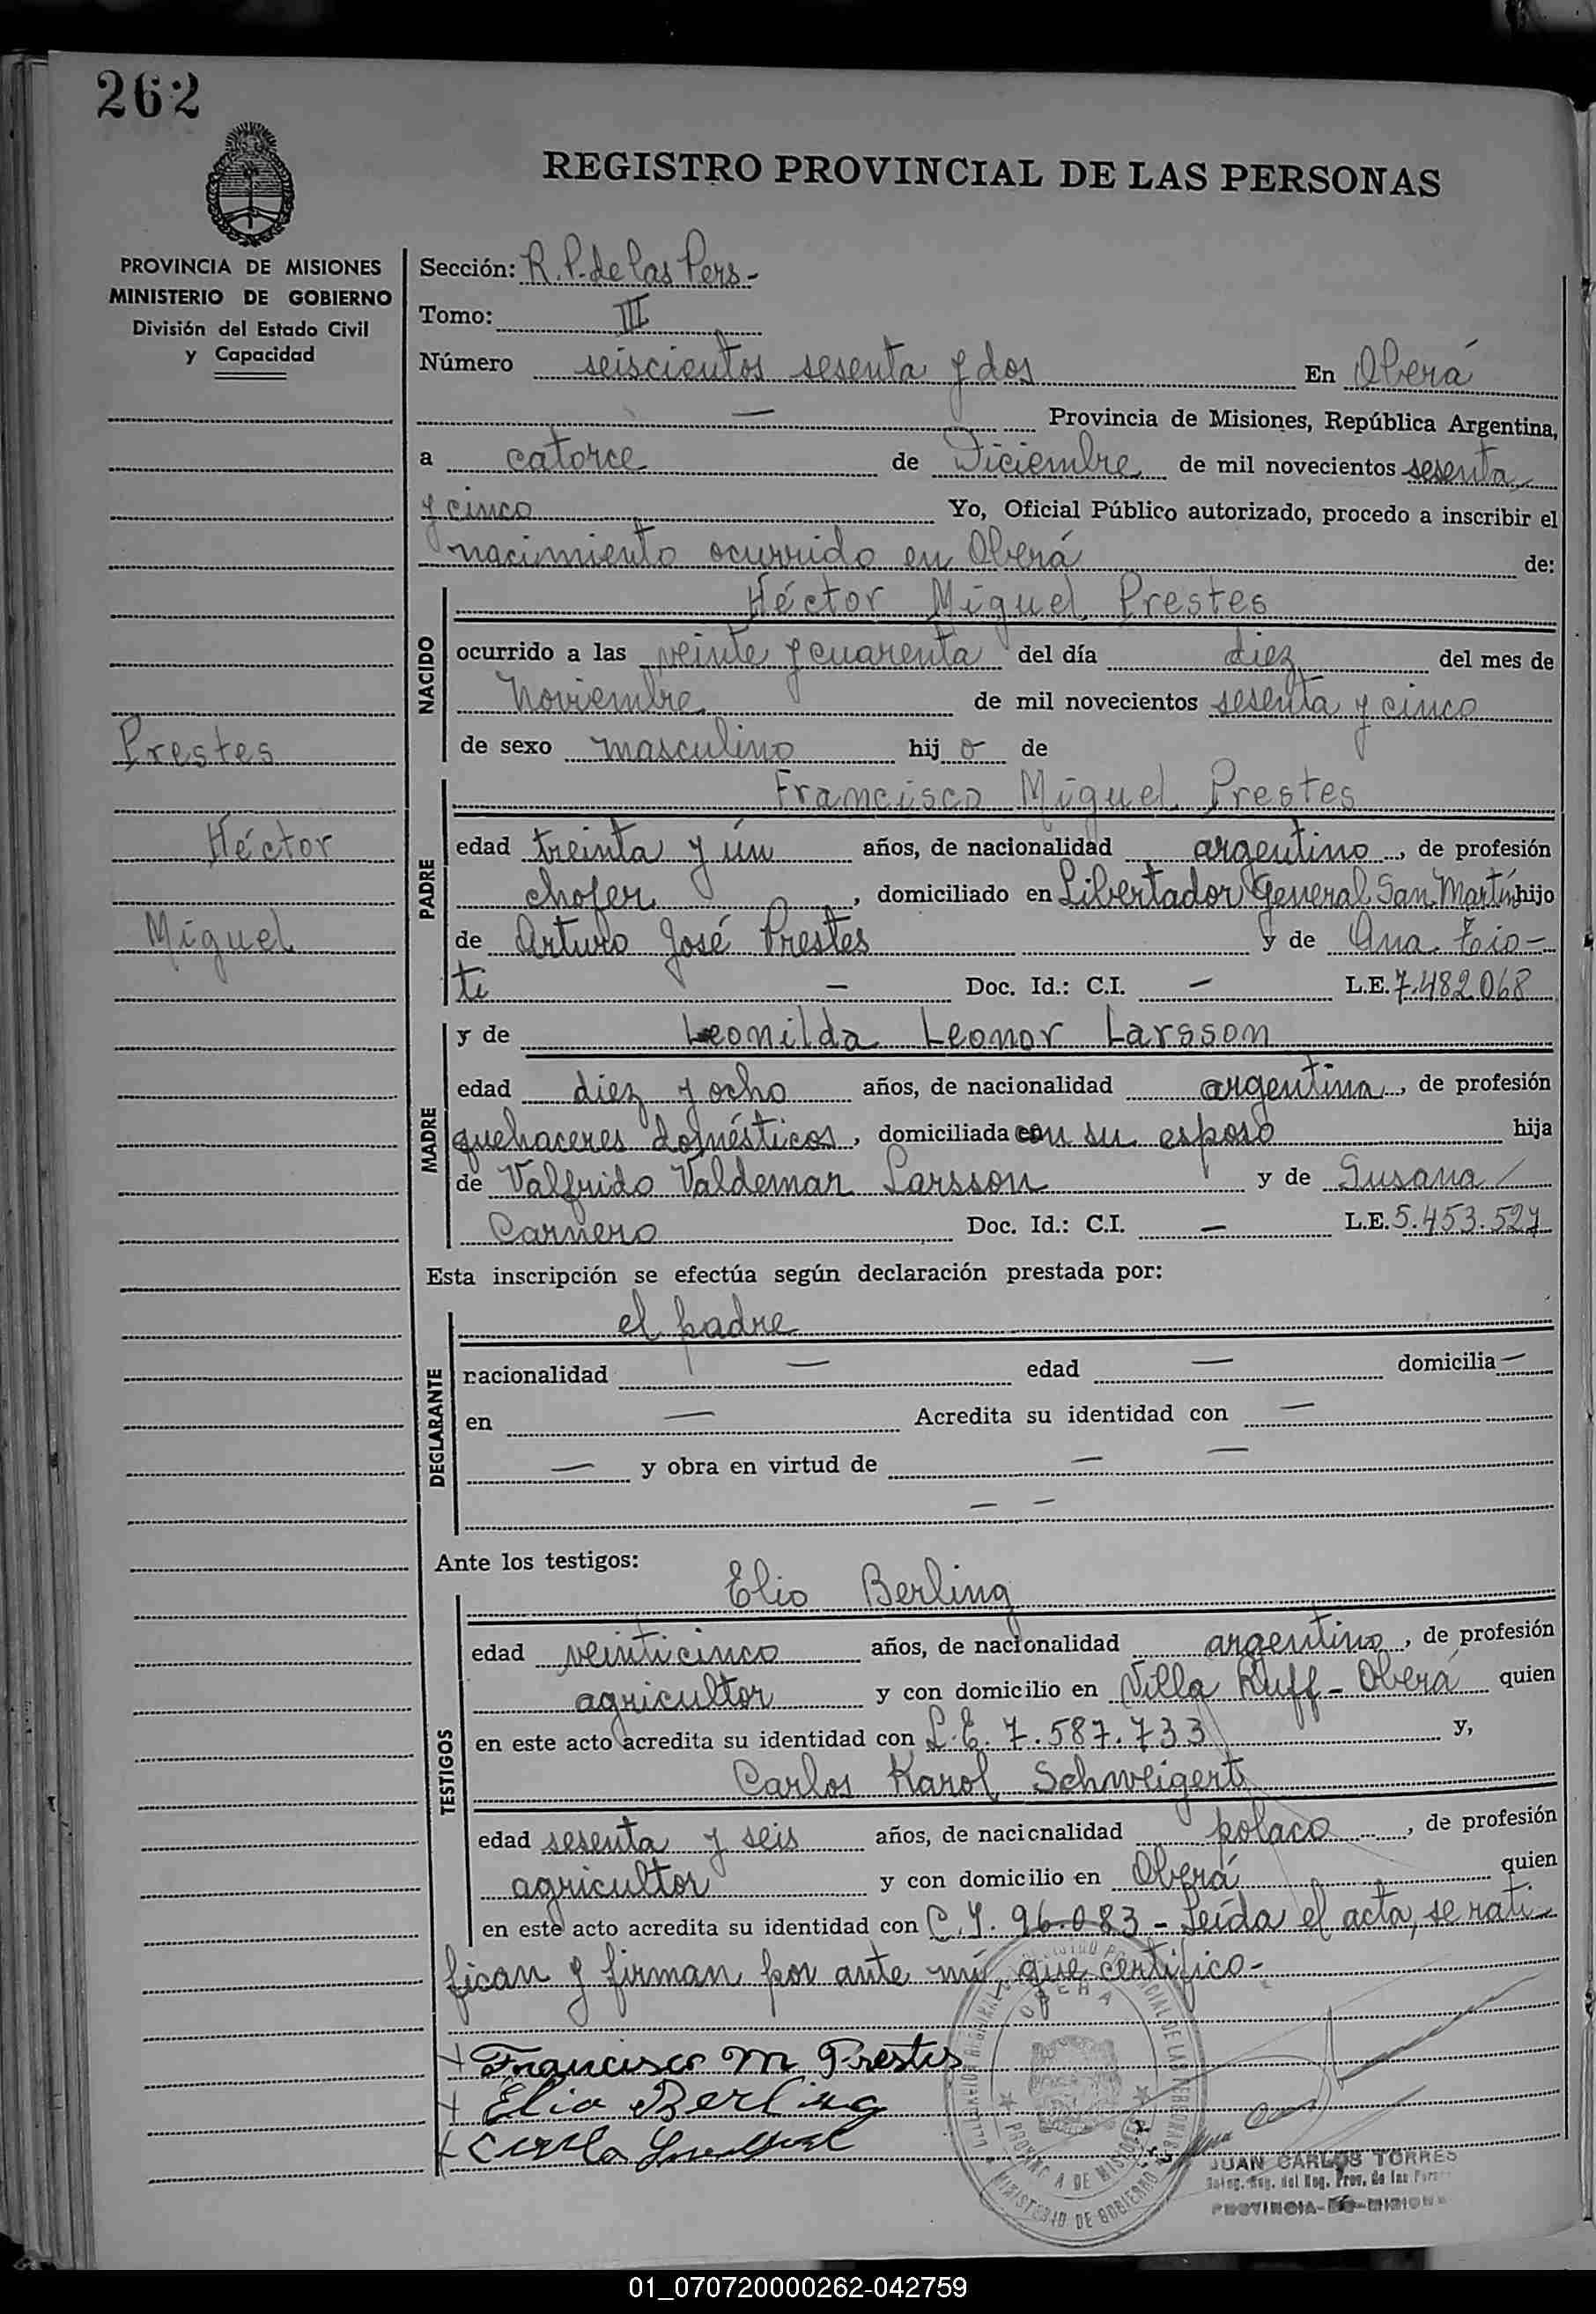 262
REGISTRO PROVINCIAL DE LAS PERSONAS
PROVINCIA DE MISIONES
MINISTERIO DE GOBIERNO
División del Estado Civil
y Capacidad
Sección: R.P. de las Pers-
Tomo: III
Número seiscientos sesenta y dos En Oberá
— Provincia de Misiones, República Argentina,
a catorce de Diciembre de mil novecientos sesenta
y cinco Yo, Oficial Público autorizado, procedo a inscribir el
nacimiento ocurrido en Oberá de:
NACIDO
Héctor Miguel Prestes
ocurrido a las veinte y cuarenta del día diez del mes de
Noviembre de mil novecientos sesenta y cinco
de sexo masculino hij o de
Prestes
Héctor
Miguel
PADRE
Francisco Miguel Prestes
edad treinta y ún años, de nacionalidad argentino, de profesión
chofer, domiciliado en Libertador General San Martín hijo
de Arturo José Prestes y de Ana
ti — Doc. Id.: C.I. — L.E. 7.482.068
MADRE
y de Leonilda Leonor Larsson
edad diez y ocho años, de nacionalidad argentina, de profesión
quehaceres domésticos, domiciliada con su esposo hija
de Valfrido Valdemar Larsson y de Susana
Carnero Doc. Id.: C.I. — L.E. 5.453.527
Esta inscripción se efectúa según declaración prestada por:
DECLARANTE
el padre
nacionalidad — edad — domicilia —
en — Acredita su identidad con —
— y obra en virtud de — —
— —
Ante los testigos:
TESTIGOS
Elio Berling
edad veinticinco años, de nacionalidad argentino, de profesión
agricultor y con domicilio en Villa Ruff - Oberá quien
en este acto acredita su identidad con L.E. 7.587.733 y,
Carlos Karol Schweigert
edad sesenta y seis años, de nacionalidad polaco, de profesión
agricultor y con domicilio en Oberá quien
en este acto acredita su identidad con C.I. 96.083 - Leída el acta, se rati
fican y firman por ante mí, que certifico-
Francisco M Prestes
Elio Berling
JUAN CARLOS TORRES
PROVINCIA DE MISIONES
MINISTERIO DE GOBIERNO
01_070720000262-042759